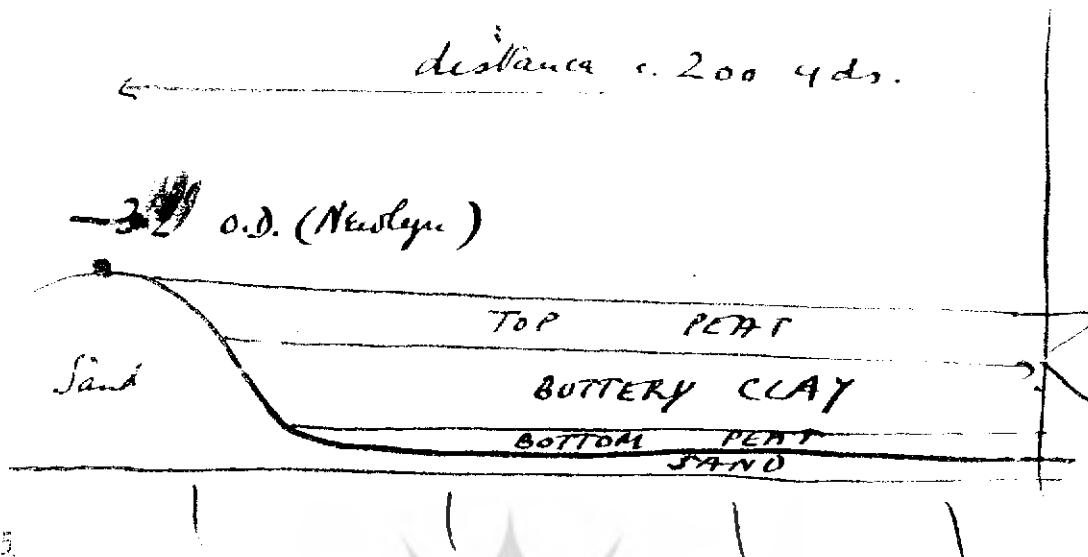 distance c. 200 yds.
O.D. (Newlyn)
TOP PEAT
Sand
BUTTERY CLAY
BOTTOM PEAT
SAND